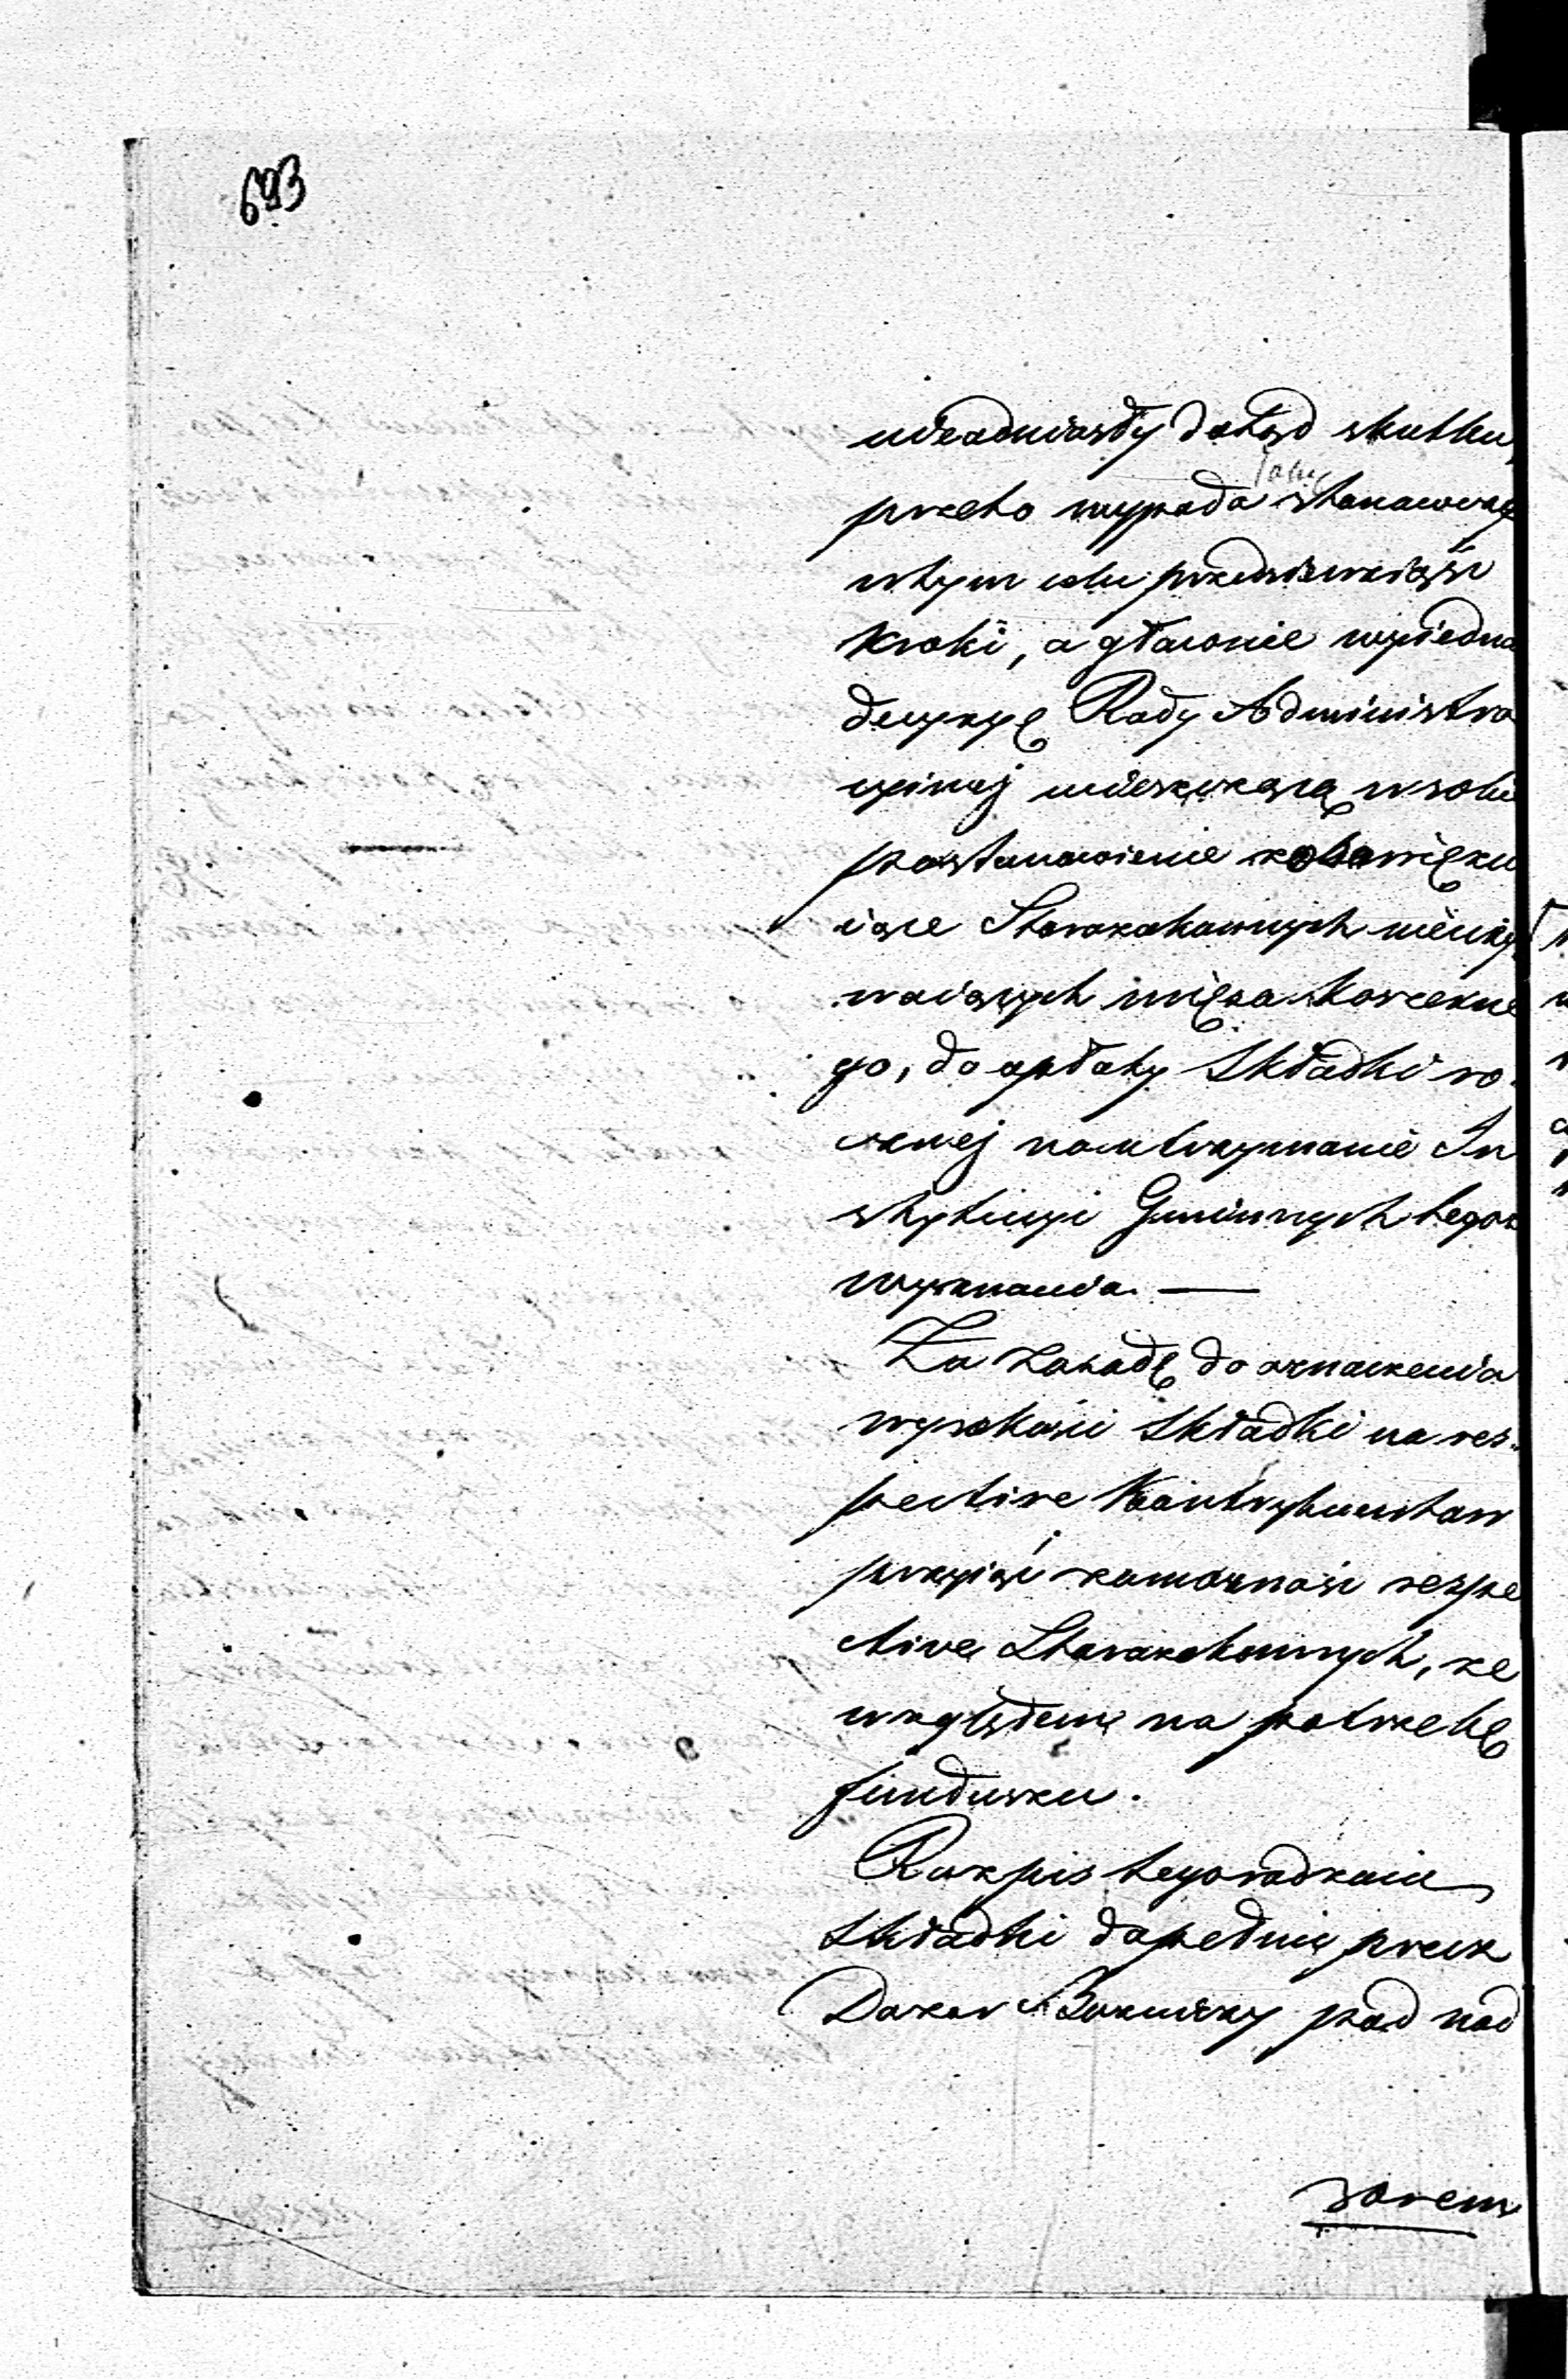 693
nieodniosły dotąd skutku,
przeto wypada stanowcze
w tym celu przedsięwziąść
Kroki, a głównie wyiedna
decyzyę Rady Administra
cyinej mieszczącą w sobie
postanowienie zobowięzu
iące Starozakonnych nieuży
waiących mięsa Koszerne
go, do opłaty Składki ro
cznej na utrzymanie In
stytucyi Gminnych tegoż
wyznania. —
Za zasadę do oznaczenia
wysokości Składki na res„
pective Kontrybuentów
przyiąć zamożność respe
ctive Starozakonnych, ze
względem na potrzebę
funduszu.
Rozpis tego rodzaiu
Składki dopełnią przez
Dozór Bozniczy pod nad
zorem